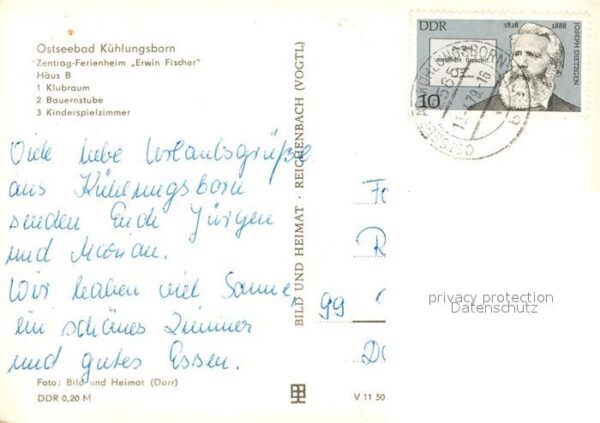 Ostseebad Kühlungsborn
Zentrag-Ferienheim „Erwin Fischer"
Haus B
1 Klubraum
2 Bauernstube
3 Kinderspielzimmer
Viele liebe Urlaubsgrüße
aus Kühlungsborn
senden Euch Jürgen
und Marian.
Wir haben viel Sonne,
ein schönes Zimmer
und gutes Essen.
Foto: Bild und Heimat (Darr)
DDR 0,20 M
BILD UND HEIMAT · REICHENBACH (VOGTL)
V 11 50
DDR
1828 1888
JOSEPH DIETZGEN
10
R
99
privacy protection
Datenschutz